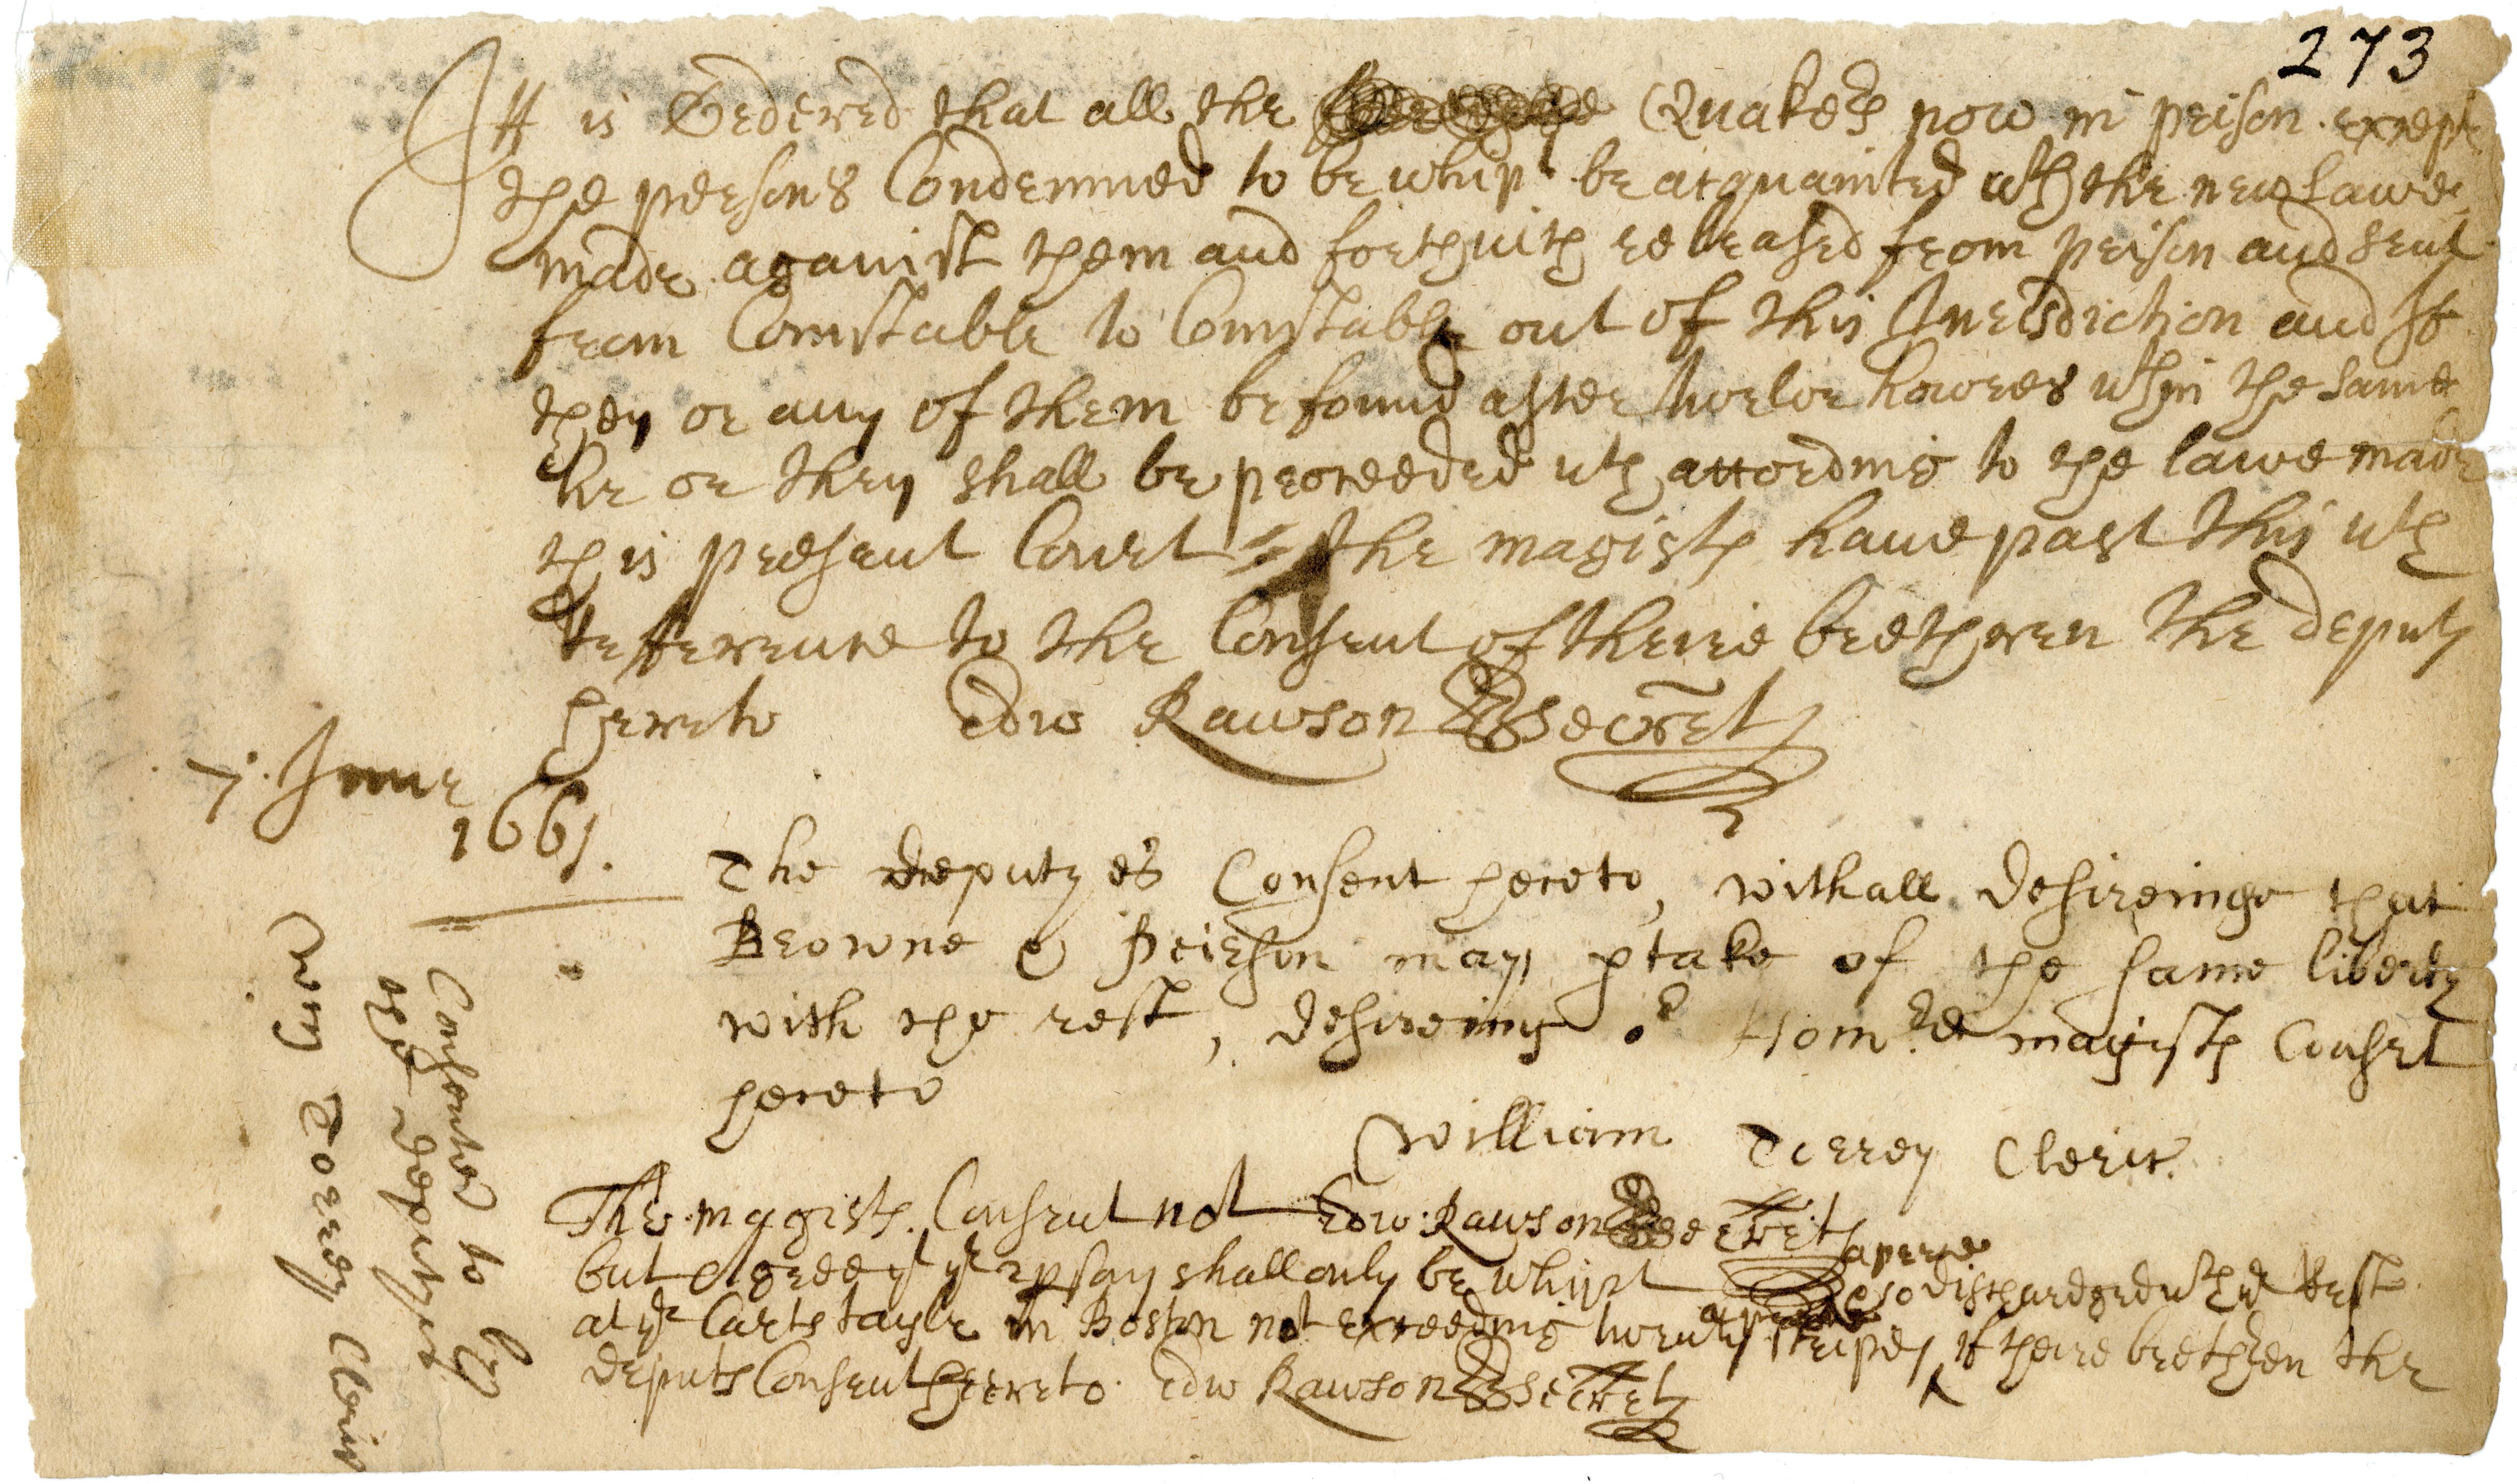 273
It is Ordered that all the Quakers now in prison except
the persons Condemned to be whipt be acquainted wth the new lawe
made against them and forthwith released from prison and sent
from Constable to Constable out of this Jurisdiction and If
they or any of them be found after twelve howers wthin the same
he or they shall be proceeded wth according to the lawe made
this present Court The magists have past this wth
refference to the Consent of theire brethren the deputs
hereto Edw Rawson Secret
7. June
1661.
The deputyes Consent hereto, withall desireinge that
Browne & Peirson may ptake of the same liberty
with the rest, desireing or Honored magists Consent
hereto
William Torrey Cleric.
The magists. Consent not Edw: Rawson Secret
but Agree yt ye psons shall only be whipt
at ye Carts tayle in Boston not exceeding twenty stripes if theire brethren the
apeece
& so dischardged wth ye Rest
deputs Consent heereto. Edw Rawson Secret
Consented to by
the deputyes
Wm Torrey Cleric